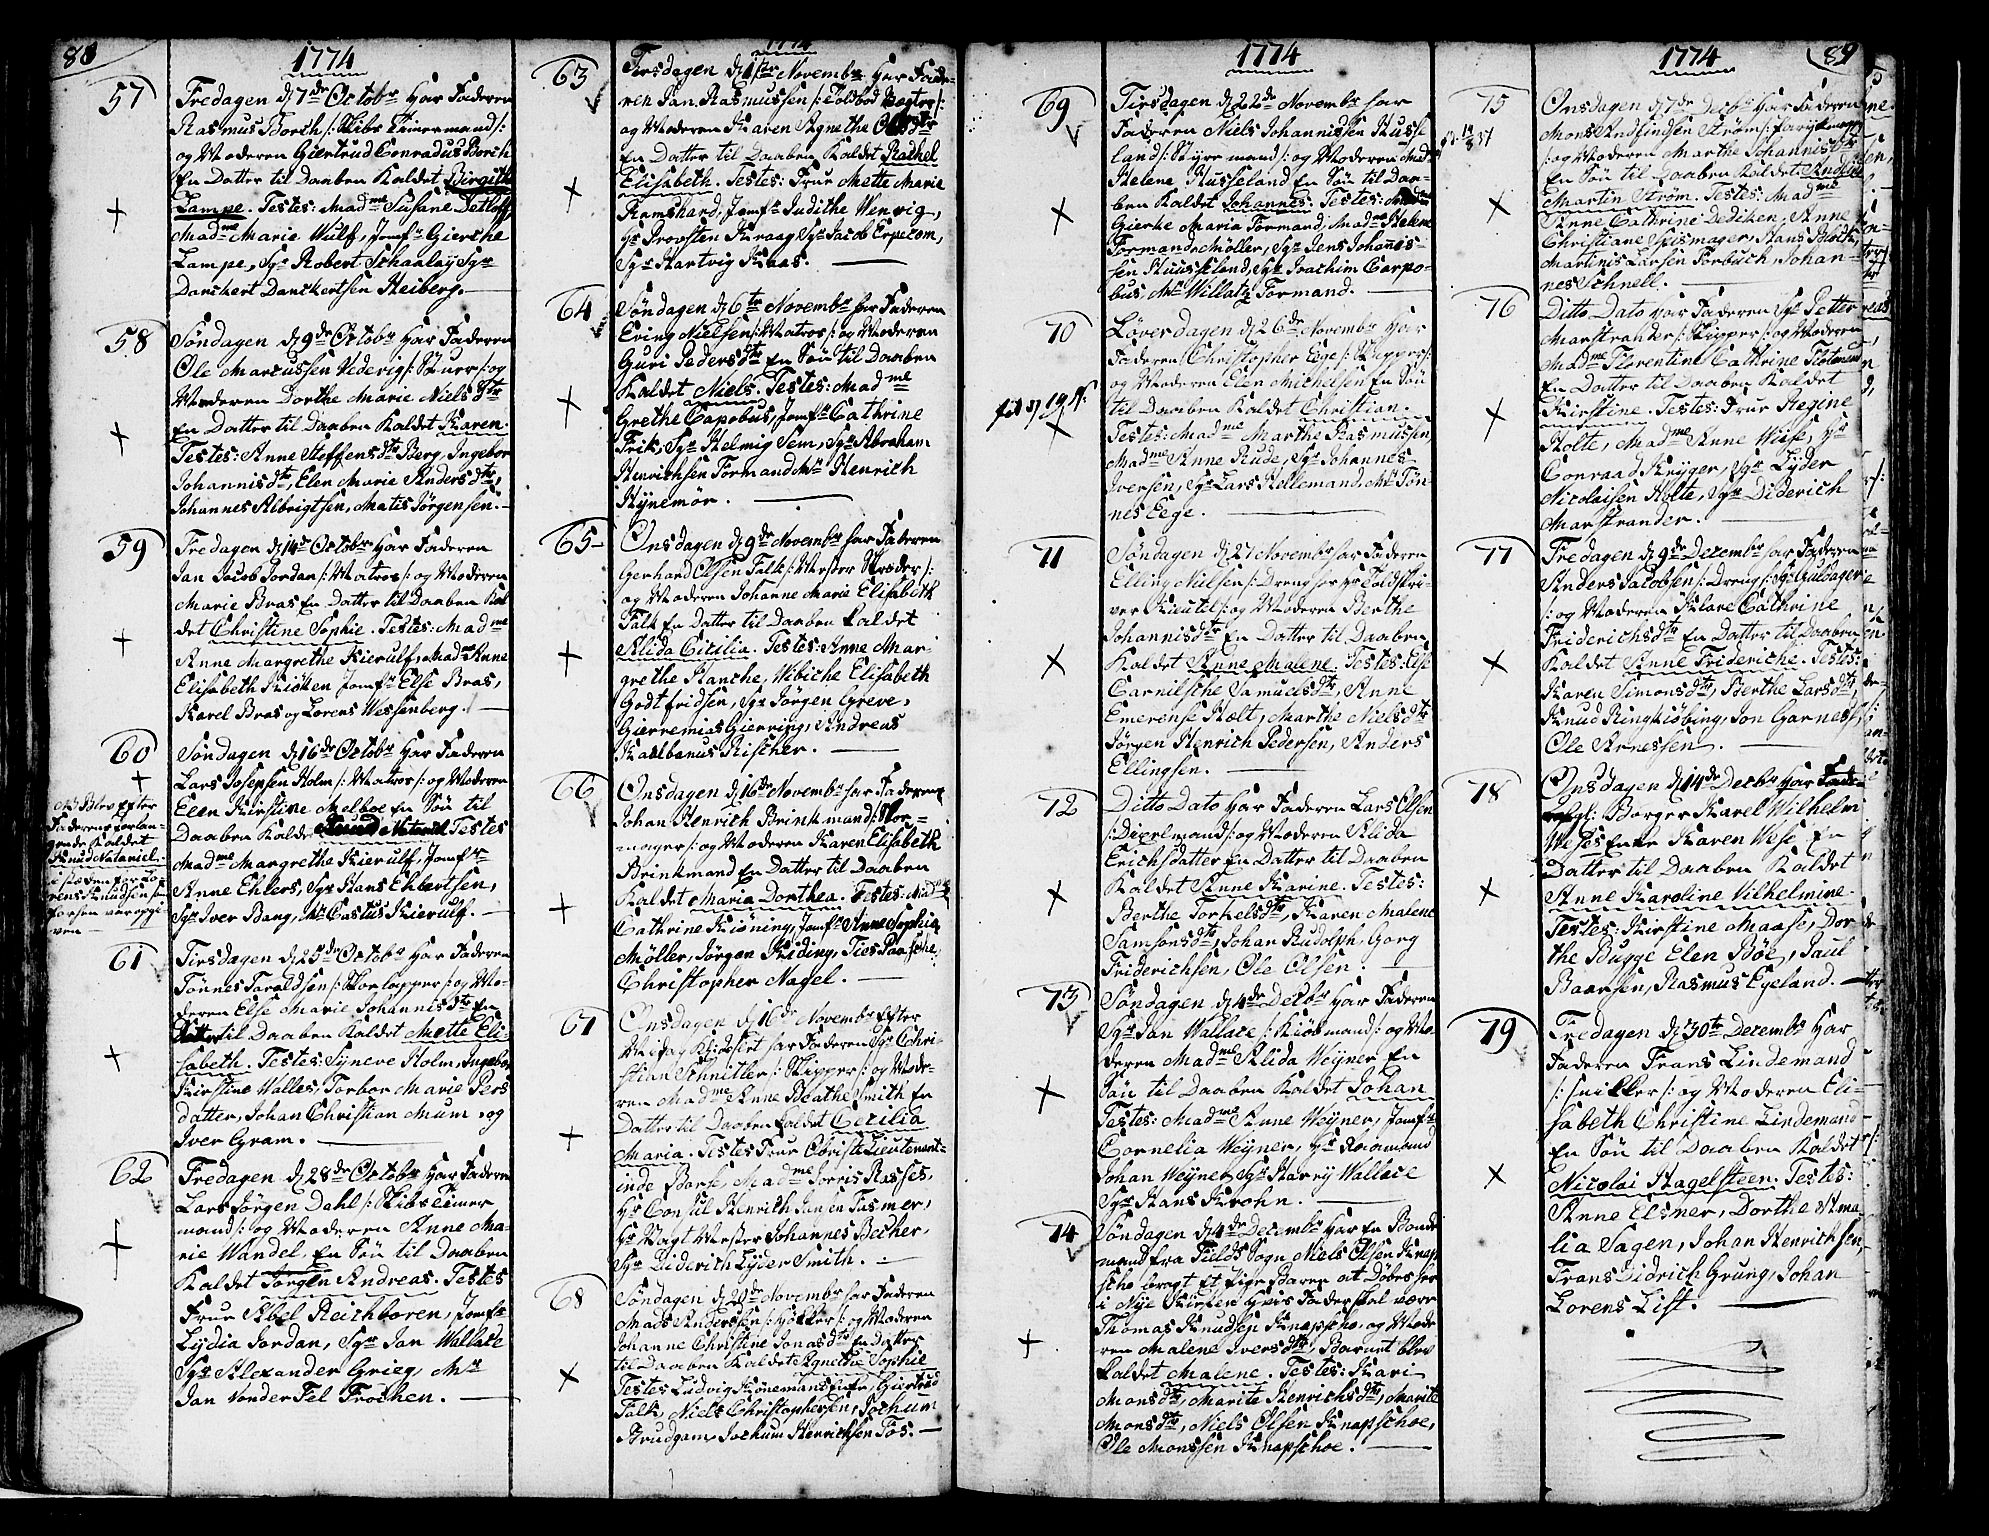 88
1774
57
Fredagen d 7de Octobr Har Faderen
Rasmus Borch /: Skibs Timermand /:
og Moderen Giertrud Conradus Borch
En Datter til Daaben Kaldet Birgithe
Lampe. Testes: Madme Susane Detloff
Madme Marie Wulf, Jomfr Giersche
Lampe, Sgr Robert Schanley Sgr
Danckert Danckertsen Heiberg.
58
Søndagen d 9de Octobr Har Faderen
Ole Marcussen Vedervig /: Stuer /: og
Moderen Dorthe Marie Niels Dtr
En Datter til Daaben Kaldet Karen.
Testes: Anne Steffensdtr Berg, Ingebor
Johannisdtr, Elen Marie Andersdtr,
Johannes Albrigtsen, Mates Jørgensen.
59
Fredagen d 14de Octobr Har Faderen
Jan Jacob Jordan /: Matros /: og Moderen
Marie Bras En Datter til Daaben Kal
det Christine Sophie. Testes: Madme
Anne Margrethe Kierulf, Madme Anne
Elisabeth Kiöken Jomfr Else Bras,
Karel Bras og Lorens Wessenberg.
60
Søndagen d 16de Octobr Har Faderen
Lars Josepsen Holm /: Matros /: og Moderen
Elen Kirstine Melboe En Søn til
Daaben Kaldet Knud Natanel Testes
Madme Margrethe Kierulf, Jomfr
Anne Ehlers, Sgr Hans Ehbertsen,
Sgr Iver Bang, Mr Castus Kierulf.
NB Blev Efter
Faderens forlan-
gende Kaldet
Knud Nataniel.
i stæden for Lo
rens Knudsen som
forhen var opgi-
ven
61
Tirsdagen d 25de Octobr Har Faderen
Tønnes Taraldsen /: Skorlapper /: og Mo-
deren Else Marie Johannisdtr En
Datter til Daaben Kaldet Mette Eli-
sabeth. Testes: Syneve Holm, Ingebor
Kirstine Walles, Torbor Marie Pers
datter, Johan Christian Mum og
Iver Gram.
62
Fredagen d 28de Octobr Har Faderen
Lars Jørgen Dahl /: Skibs Timer
mand /: og Moderen Anne Ma-
rie Wandel, En Søn til Daaben
Kaldet Jørgen Andreas. Testes
Frue Abel Reichboren, Jomfr
Lydia Jordan, Sgr Jan Wallace
Sgr Alexander Grieg, Mr
Jan Vonder Fel Trochen.
1774
63
Tirsdagen d 1ste Novembr Har Fade-
ren Jan Rasmussen /: Toldbod Vogter /:
og Moderen Karen Agnethe Olsdtr
En Datter til Daaben Kaldet Rachel
Elisabeth. Testes: Frue Mette Marie
Ramshard, Jomfr Judithe Wenvig,
Hr Provsten Kraag Sgr Jacob Erpecom,
Sgr Hartvig Kaas.
64
Søndagen d 6te Novembr har Faderen
Ering Nielsen /: Matros /: og Moderen
Guri Pedersdtr En Søn til Daaben
Kaldet Niels. Testes: Madme
Grethe Capobus, Jomfr Cathrine
Frik, Sgr Helmig Sem, Sgr Abraham
Henrichsen Formand Mr Henrich
Hynemör.
65
Onsdagen d 9de Novembr har Faderen
Gerhard Olsen Falk /: Mester Skreder /:
og Moderen Johanne Marie Elisabeth
Falk En Datter til Daaben Kaldet
Alida Cicilia. Testes: Anne Mar-
grethe Hanche, Wibiche Elisabeth
Godtfridsen, Sgr Jørgen Greve,
Gierremias Gierring, Andreas
Kallbanus Rischer.
66
Onsdagen d 16de Novembr har Faderen
Johan Henrich Brinkmand /: Skoe-
mager /: og Moderen Karen Elisabeth
Brinkmand En Datter til Daaben
Kaldet Maria Dorthea. Testes: Madme
Cathrine Kiöning, Jomfr Anne Sophie
Møller, Jørgen Kiding, Ties Paasche,
Christopher Nagel.
67
Onsdagen d 16de Novembr Efter
Midag Kl: Desert har Faderen Sgr Chri-
stian Schnitler /: Skipper /: og Mode-
ren Madme Anne Beathe Smith En
Datter til Daaben Kaldet Cecilia
Maria. Testes Frue Obriste Lieutenent-
inde Barse, Madme Jorris Rasses,
Hr Con til Henrich Jansen Fasmer,
Hr Vagt Mester Johannes Becher,
Sgr Diderich Lyder Smith.
68
Søndagen d 20de Novembr har Faderen
Mads Anderssen /: Høkker /: og Moderen
Johanne Christine Jonasdtr En Datter
til Daaben Kaldet Agnethe Sophie
Testes Ludvig Kønemands Enke, Giertrud
Falk, Niels Christophersen, Jochum
Brudgam, Jochum Henrichsen Fos.
1774
69
Tirsdagen d 22de Novembr har
Faderen Niels Johannissen Husse
land /: Styremand /: og Moderen Madme
Helene Husseland En Søn til Daa-
ben Kaldet Johannes: Testes: Madme
Gierke Maria Formand, Madme Helene
Formand Møller, Sgr Jens Johannis-
sen Huusseland, Sgr Joachim Carpo-
bus Mr Willatz Formand.
70
Löverdagen d 26de Novembr Har
Faderen Christopher Eege /: Skipper /:
og Moderen Elen Michelsen En Søn
til Daaben Kaldet Christian.
Testes: Madme Marthe Rasmussen,
Madme Anne Rude, Sgr Johannes
Iversen, Sgr Lars Hellemand, Mr Tön-
nes Eege.
71
Søndagen d 27 Novembr har Faderen
Elling Nielsen /: Dreng for Hr Toldskri-
ver Kieutel /: og Moderen Berthe
Johannisdtr En Datter til Daaben
Kaldet Anne Malene. Testes: Else
Carnilsche Samuelsdtr, Anne
Emerense Hælt, Marthe Nielsdtr
Jörgen Henrich Pedersen, Anders
Ellingsen.
72
Ditto Dato Har Faderen Lars Olsen
/: Digelmand /: og Moderen Alida
Erichsdatter En Datter til Daaben
Kaldet Anne Karine. Testes:
Berthe Torkelsdtr, Karen Malene
Samsonsdtr, Johan Rudolph, Georg
Friderichsen, Ole Olsen.
73
Søndagen d 4de Decbr Har Faderen
Sgr Jan Wallace /: Kiöbmand /: og Mo-
deren Madme Alida Weyner En
Søn til Daaben Kaldet Johan
Testes: Madme Anne Weyner, Jomfr
Cornelia Weyner, Hr Raadmand
Johan Weyner Sgr Harry Wallace
Sgr Hans Krohn.
74
Søndagen d 4de Decembr Har En Bonde
mand fra Fields Sogn Niels Olsen Knap
sche bragt Et Pige Barn at Döbes her
i Nye Kirken Hvis Fader skal være
Thomas Knudsen Knapschoe, og Mode
ren Malene Iversdtr, Barnet blev
Kaldet Malene. Testes: Kari
Monsdtr, Marite Henrichsdtr, Marite
Monsdtr, Niels Olsen Knapschoe,
Ole Monssen Knapschoe.
1774
89
75
Onsdagen d 7de Decbr Har Faderen
Mons Andfindsen Ström
/: og Moderen Marthe Johannisdtr
En Søn til Daaben Kaldet: Andfind
Martin Ström. Testes: Madme
Anne Cathrine Dediken, Anne
Christiane Spismager, Hans Blydt,
Martinis Larsen Forbuch, Johan-
nes Schnell.
76
Ditto Dato Har Faderen Sgr Petter
Marstrander /: Skipper /: og Moderen
Madme Florentine Cathrine Flotmand
En Datter til Daaben Kaldet
Kirstine. Testes: Frue Regine
Holte, Madme Anne Wiese, Hr
Conraad Kryger, Sgr Lyder
Nicolaisen Holte, Sgr Diderich
Marstrander.
77
Fredagen d 9de Decembr har Faderen
Anders Jacobsen /: Dreng for Sgr Guldager
/: og Moderen Klare Cathrine
Friderichsdtr En Datter til Daaben
Kaldet Anne Frideriche. Testes:
Karen Simonsdtr, Berthe Larsdtr,
Knud Ringkiöbing, Jon Garness,
Ole Arnessen.
78
Onsdagen d 14de Decbr Har Fade-
Borger Karel Wilhelm
Weses Enke Karen Wese En
Datter til Daaben Kaldet
Anne Karoline Vilhelmine.
Testes: Kirstine Maase, Dor-
the Bugge Elen Böe, Paul
Baarsen, Rasmus Egeland.
79
Fredagen d 30te Decembr Har
Faderen Frans Lindemand
/: Snikker /: og Moderen Eli-
sabeth Christine Lindemand
En Søn til Daaben Kaldet
Nicolai Hagelsteen. Testes:
Anne Elsner, Dorthe Ama-
lia Sagen, Johan Henrichsen,
Frans Didrich Grung, Johan
Lorens List.